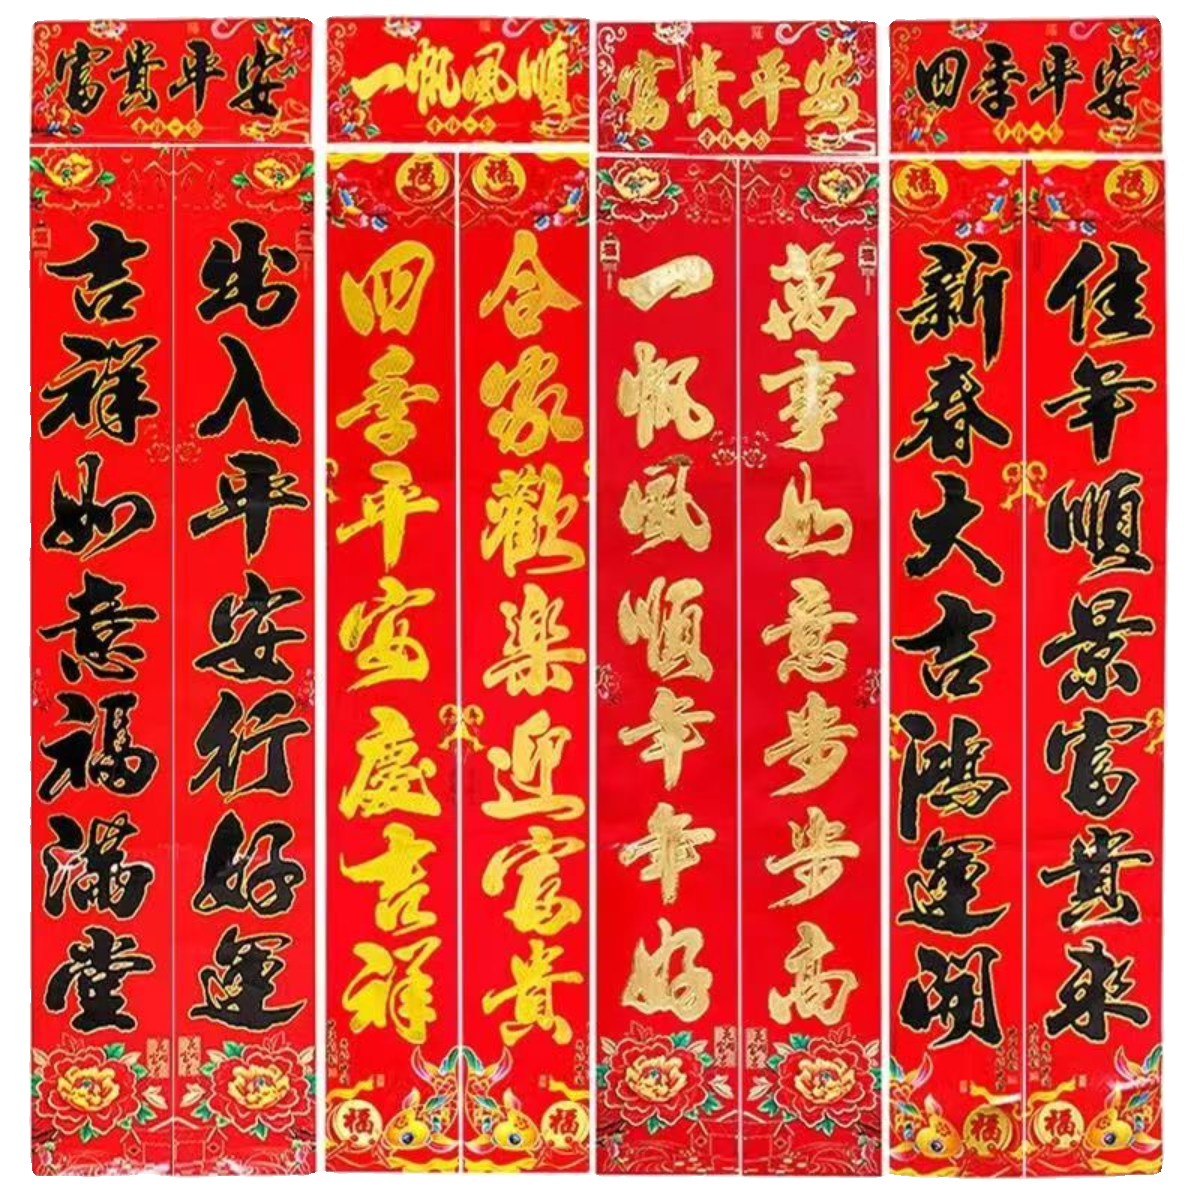 富貴平安
出入平安行好運
吉祥如意福滿堂
一帆風順
合家歡樂迎富貴
四季平安慶吉祥
富貴平安
萬事如意步步高
一帆風順年年好
四季平安
佳年順景富貴來
新春大吉鴻運開
福
福
福
福
福
福
福
福